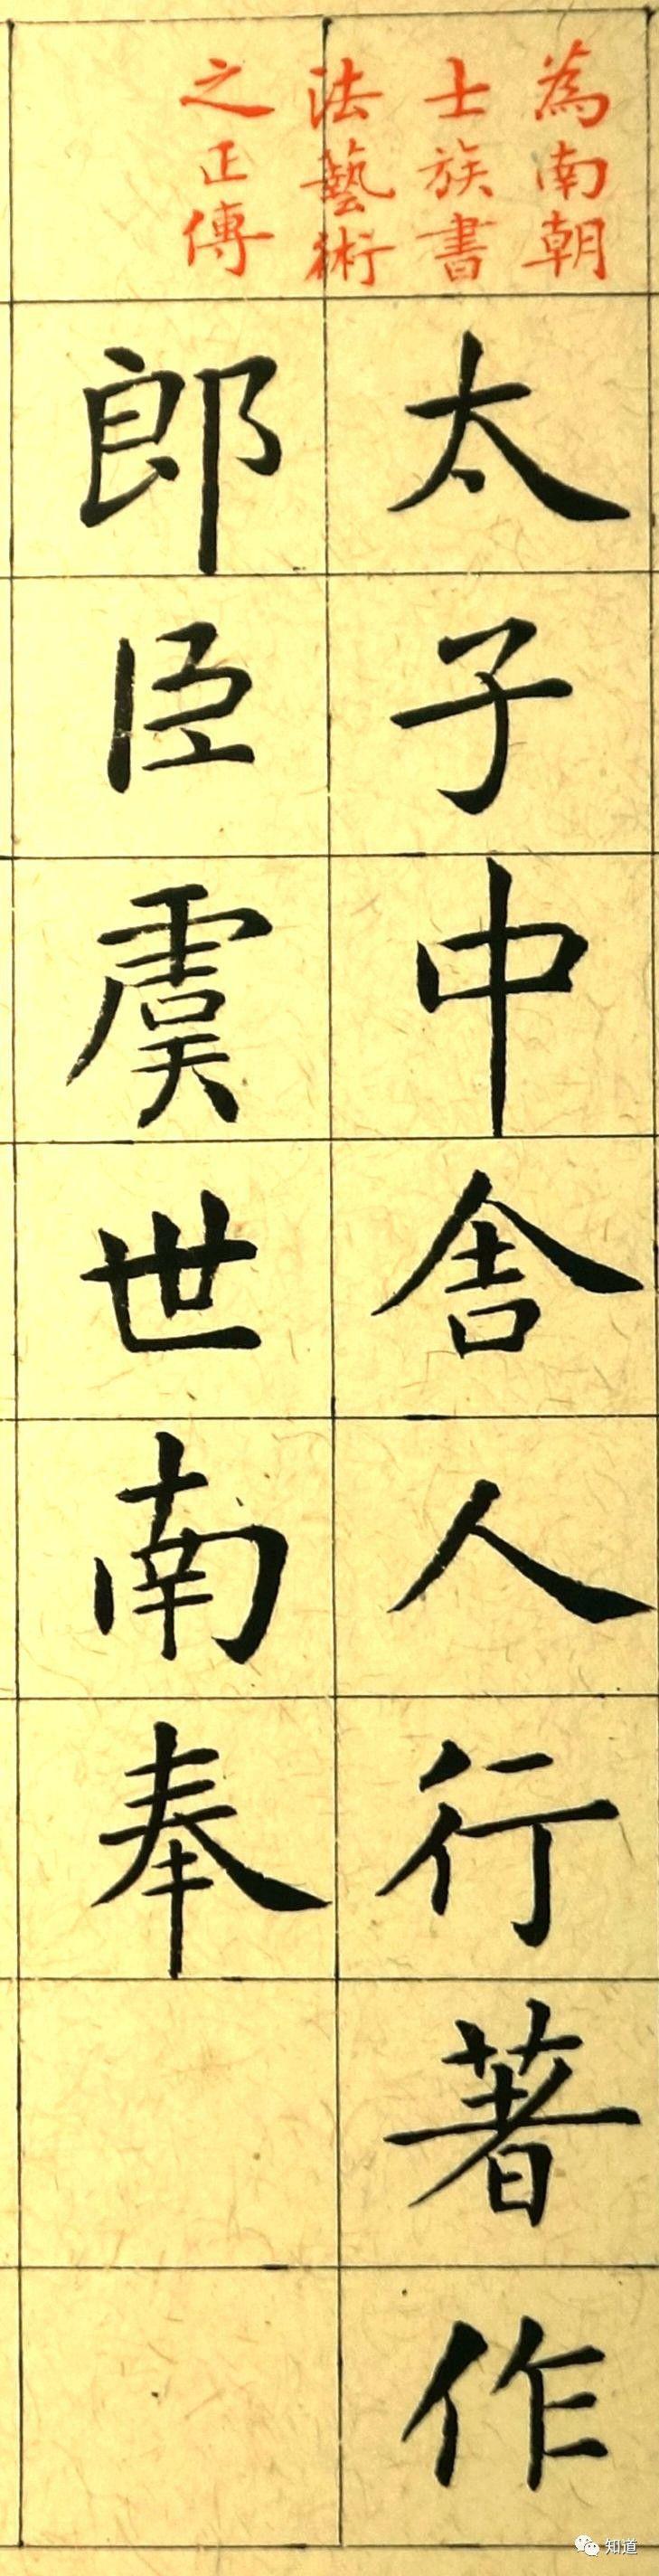 為南朝
士族書
法藝術
之正傳
太子中舍人行著作
郎臣虞世南奉
知道